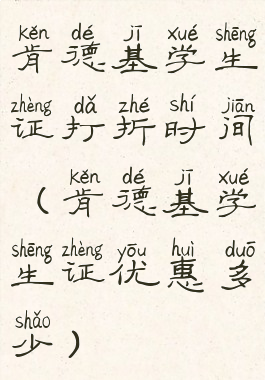 kěn dé jī xué shēng
肯德基学生
zhèng dǎ zhé shí jiān
证打折时间
kěn dé jī xué
(肯德基学
shēng zhèng yōu huì duō
生证优惠多
shǎo
少)